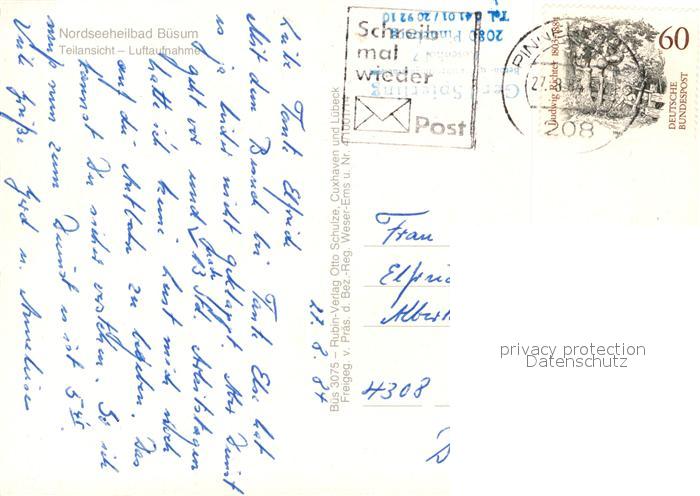 Nordseeheilbad Büsum
Teilansicht – Luftaufnahme
27.8.84
Liebe Tante Elfriede
Mit dem Besuch bei Tante Else hat
es ja leider nicht geklappt. Aber Dienst
geht vor und nach 13 Std. Arbeitstagen
hatte ich keine Lust mich noch
auf die Autobahn zu begeben. Das
kannst Du sicher verstehen. So ich
muß nun zum Dienst es ist 5 45
Viele Grüße Gerd u. Anneliese
Büs 3075 – Rubin-Verlag Otto Schulze, Cuxhaven und Lübeck
Freigeg. v. Präs. d. Bez.-Reg. Weser-Ems u. Nr.
Schreib
mal
wieder
Post
2080 Pin
Tel. 0 41 01 / 20 92 10
Gerd Spierling
PINN
27.8.84
208
Ludwig Richter 1803-1884
60
DEUTSCHE
BUNDESPOST
Frau
Elfri
Alber
4308
privacy protection
Datenschutz